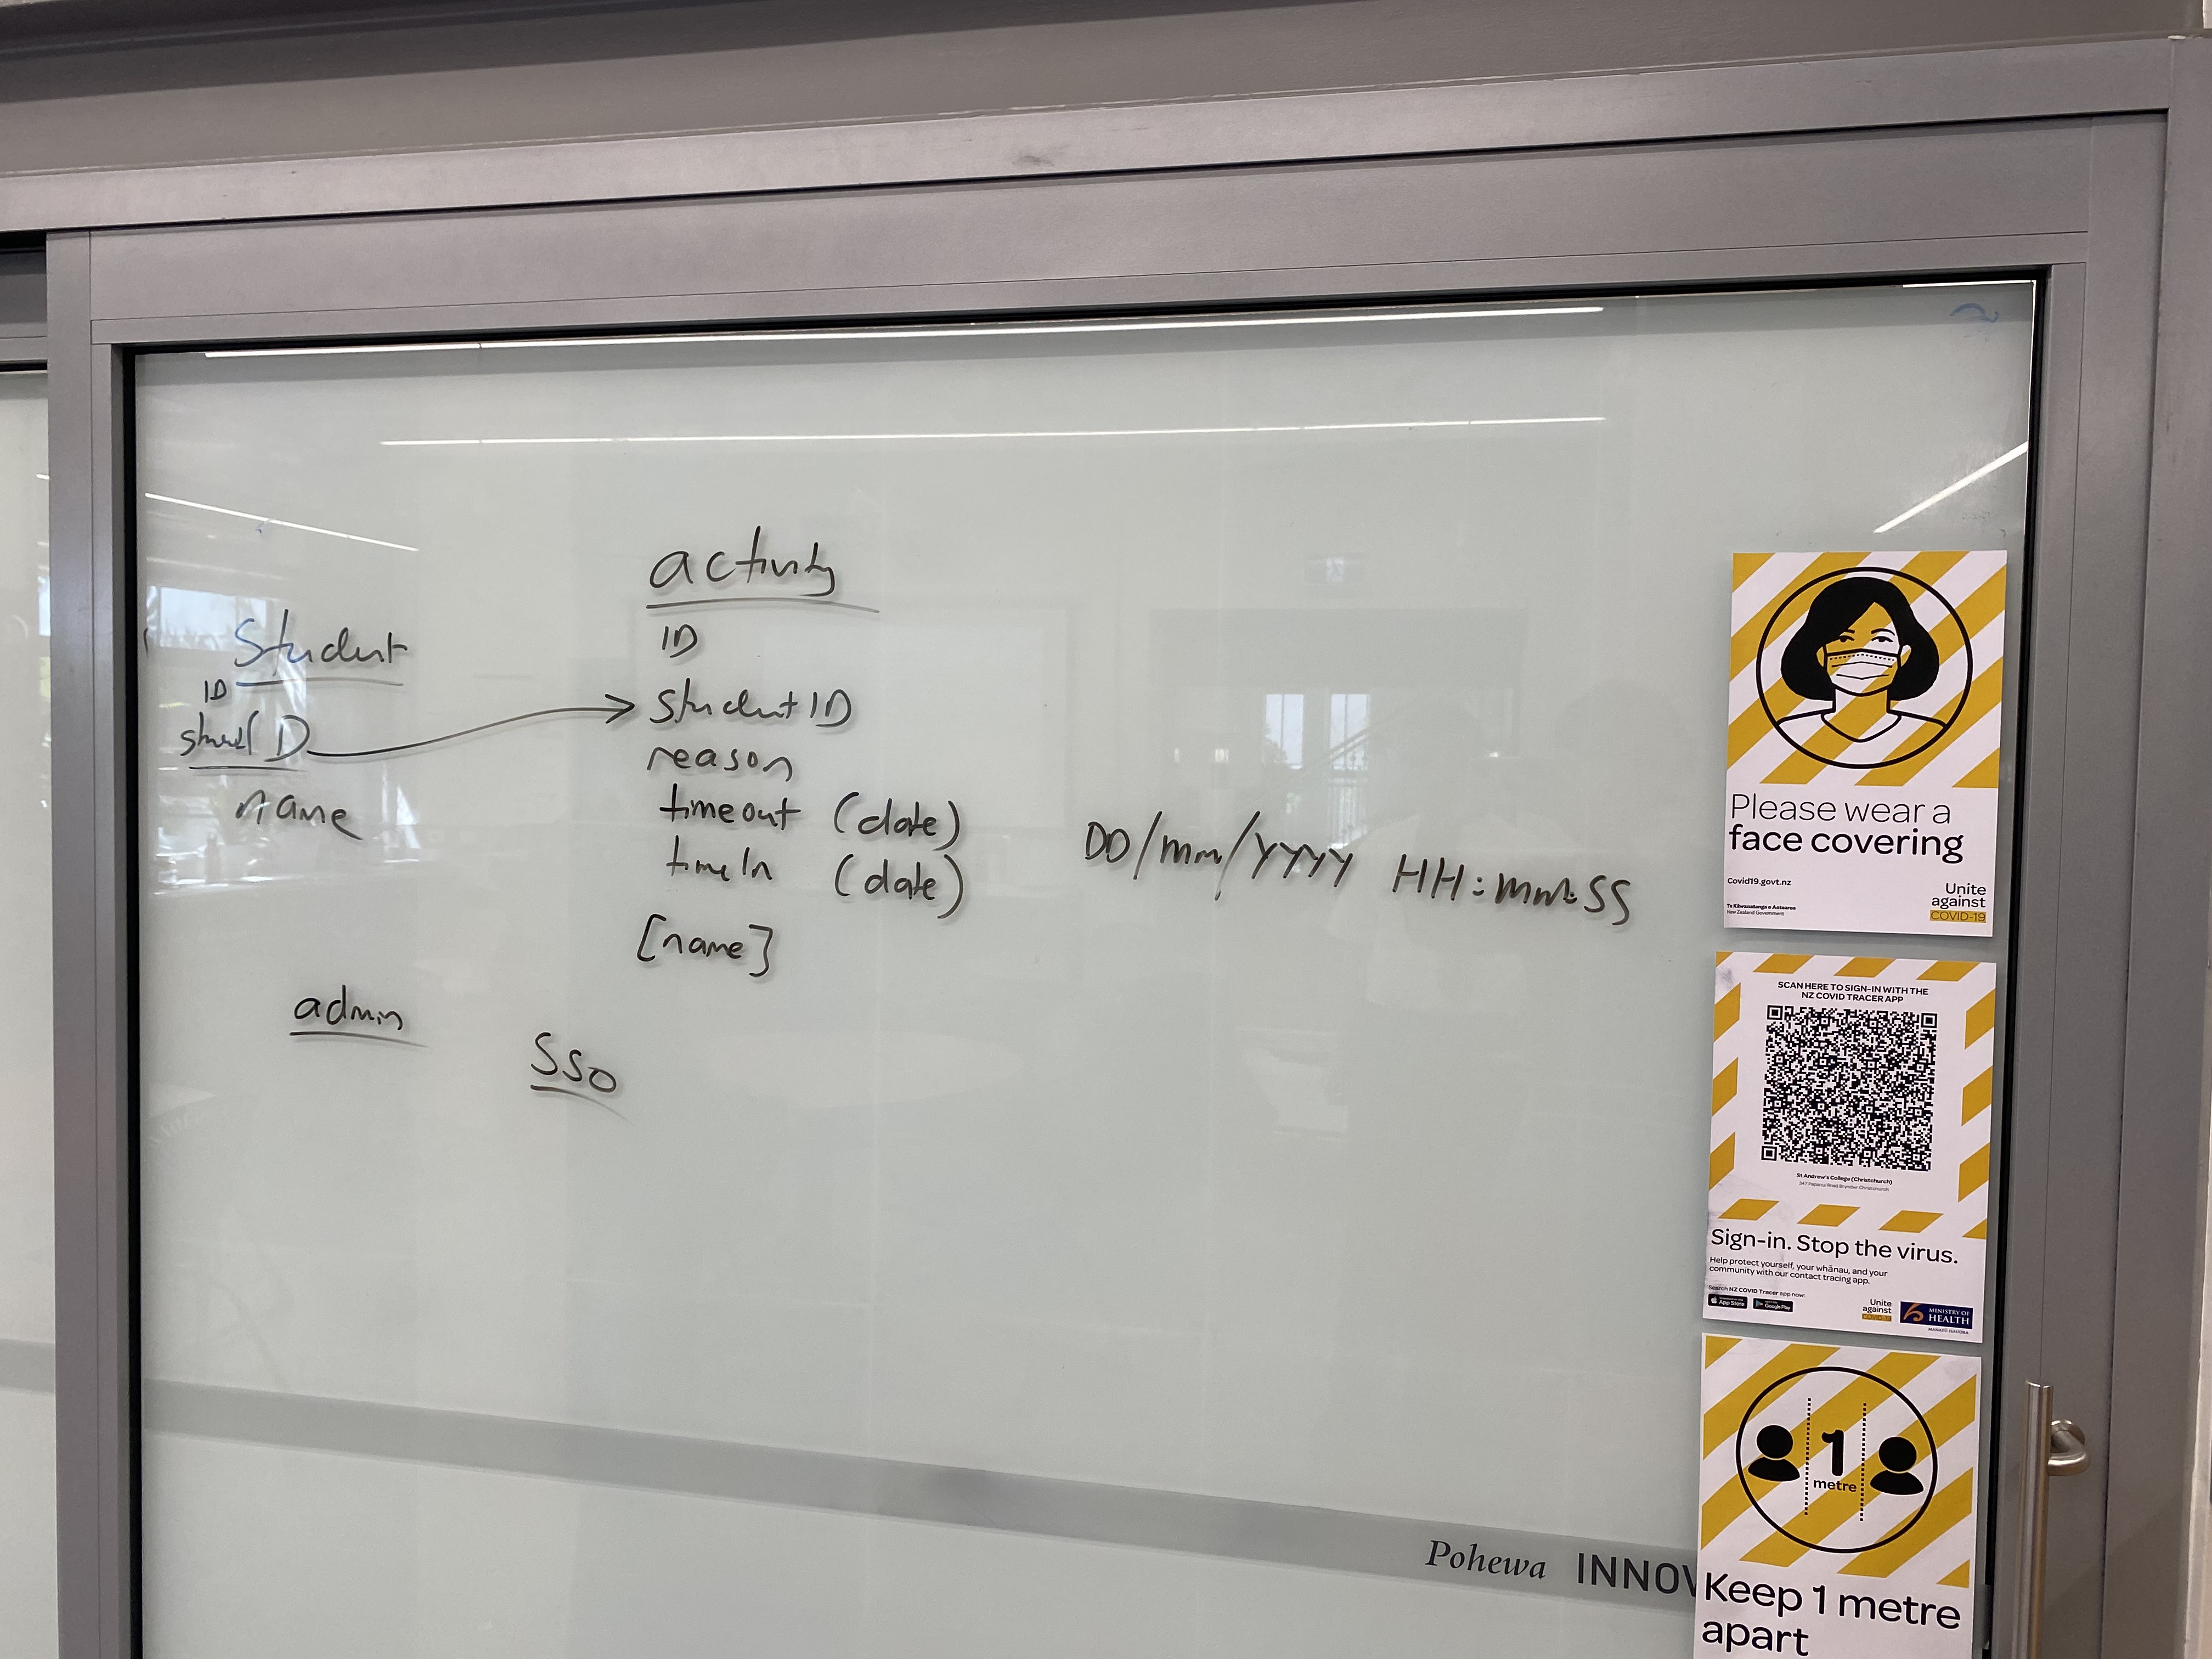 activity
ID
studentID
reason
timeout (date)
timeIn (date)
[name]
DD/mm/YYYY HH:mm:SS
Student
ID
name
admin
SSO
Please wear a
face covering
Covid19.govt.nz
Te Kāwanatanga o Aotearoa
New Zealand Government
Unite
against
COVID-19
SCAN HERE TO SIGN-IN WITH THE
NZ COVID TRACER APP
St Andrew's College (Christchurch)
347 Papanui Road Bryndwr Christchurch
Sign-in. Stop the virus.
Help protect yourself, your whānau, and your
community with our contact tracing app.
Search NZ COVID Tracer app now:
App Store
Google Play
Unite
against
COVID-19
MINISTRY OF
HEALTH
MANATŪ HAUORA
1
metre
Keep 1 metre
apart
Pohewa INNOV